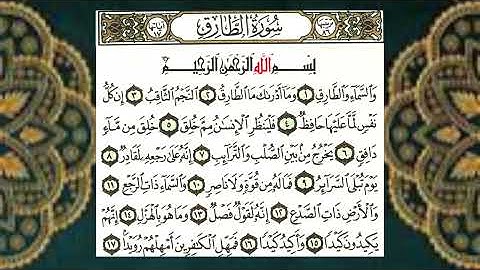 سُورَةُ الطَّارِقِ
بِسْمِ اللَّهِ الرَّحْمَٰنِ الرَّحِيمِ
وَالسَّمَاءِ وَالطَّارِقِ ١ وَمَا أَدْرَاكَ مَا الطَّارِقُ ٢ النَّجْمُ الثَّاقِبُ ٣ إِن كُلُّ
نَفْسٍ لَّمَّا عَلَيْهَا حَافِظٌ ٤ فَلْيَنظُرِ الْإِنسَٰنُ مِمَّ خُلِقَ ٥ خُلِقَ مِن مَّاءٍ
دَافِقٍ ٦ يَخْرُجُ مِن بَيْنِ الصُّلْبِ وَالتَّرَائِبِ ٧ إِنَّهُ عَلَىٰ رَجْعِهِ لَقَادِرٌ ٨
يَوْمَ تُبْلَى السَّرَائِرُ ٩ فَمَا لَهُ مِن قُوَّةٍ وَلَا نَاصِرٍ ١٠ وَالسَّمَاءِ ذَاتِ الرَّجْعِ ١١
وَالْأَرْضِ ذَاتِ الصَّدْعِ ١٢ إِنَّهُ لَقَوْلٌ فَصْلٌ ١٣ وَمَا هُوَ بِالْهَزْلِ ١٤ إِنَّهُمْ
يَكِيدُونَ كَيْدًا ١٥ وَأَكِيدُ كَيْدًا ١٦ فَمَهِّلِ الْكَافِرِينَ أَمْهِلْهُمْ رُوَيْدًا ١٧